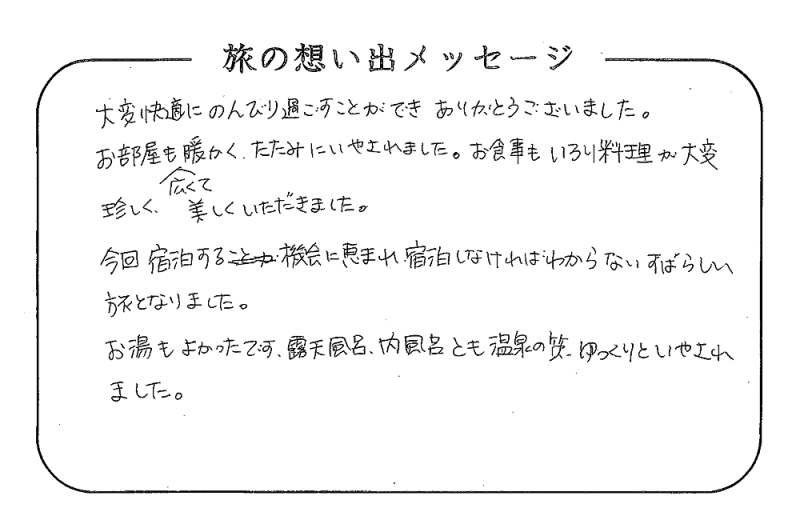 旅の想い出メッセージ
大変快適にのんびり過ごすことができ ありがとうございました。
お部屋も暖かく、たたみにいやされました。お食事もいろり料理が大変
広くて
珍しく、美しくいただきました。
今回宿泊することが機会に恵まれ、宿泊しなければわからないすばらしい
旅となりました。
お湯もよかったです、露天風呂、内風呂とも温泉の質、ゆっくりといやされ
ました。